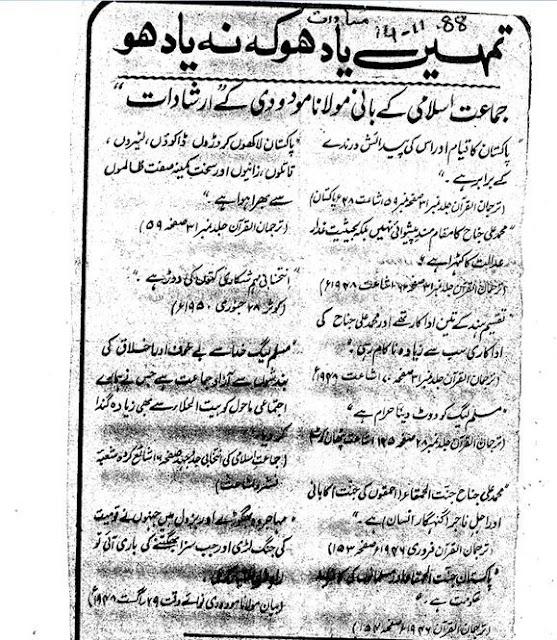 مساوات
14-11-88
تمہیں یاد ہو کہ نہ یاد ہو
جماعت اسلامی کے بانی مولانا مودودی کے "ارشادات"
پاکستان کا قیام اور اس کی پیدائش درندے
کے برابر ہے۔"
(ترجمان القرآن جلد نمبر ۳۱ صفحہ نمبر ۵۹ اشاعت ۴۸ پاکستان)
محمد علی جناح کا مقام مسند پیشوائی نہیں بلکہ بحیثیت غدار
عدالت کا کٹہرا ہے۔
(ترجمان القرآن جلد نمبر ۳۱ صفحہ اشاعت ۱۹۴۸ء)
تقسیم ہند کے تین اداکار تھے اور محمد علی جناح کی
اداکاری سب سے زیادہ ناکام رہی۔
(ترجمان القرآن جلد نمبر ۳۱ صفحہ ۷۰ اشاعت ۱۹۴۸ء)
"مسلم لیگ کو ووٹ دینا حرام ہے"
(ترجمان القرآن جلد نمبر ۲۸ صفحہ ۱۴۵ اشاعت پٹھان کوٹ)
محمد علی جناح جنت الحمقاء (احمقوں کی جنت) کا بانی
اور اجل فاجر (گنہگار انسان) ہے۔"
(ترجمان القرآن فروری ۱۹۴۶ء صفحہ ۱۵۳)
"پاکستان جنت الحمقاء اور مسلمانوں کی کافرانہ
حکومت ہے۔
(ترجمان القرآن ۱۹۴۶ء صفحہ ۱۵۴)
"پاکستان لاکھوں کروڑوں ڈاکوؤں، لٹیروں،
قاتلوں، زانیوں اور سخت کمینہ صفت ظالموں
سے بھرا ہوا ہے۔"
(ترجمان القرآن جلد نمبر ۳۱ صفحہ ۵۹)
"انتخابی مہم شکاری کتوں کی دوڑ ہے۔"
(کوثر ۲۸ جنوری ۱۹۵۰ء)
مسلم لیگ خدا سے بے خوف اور اخلاق کی
بندشوں سے آزاد جماعت ہے جس نے ہمارے
اجتماعی ماحول کو بیت الخلاء سے بھی زیادہ گندا
کر دیا۔
(جماعت اسلامی کی انتخابی جدوجہد صفحہ ۱۶ شائع کردہ شعبہ
نشر و اشاعت)
"مہاجر وہ بھگوڑے اور بزدل ہیں جنہوں نے قومیت
کی جنگ لڑی اور جب سزا بھگتنے کی باری آئی تو
(بیان مولانا مودودی نوائے وقت ۲۹ اگست ۱۹۴۸ء)